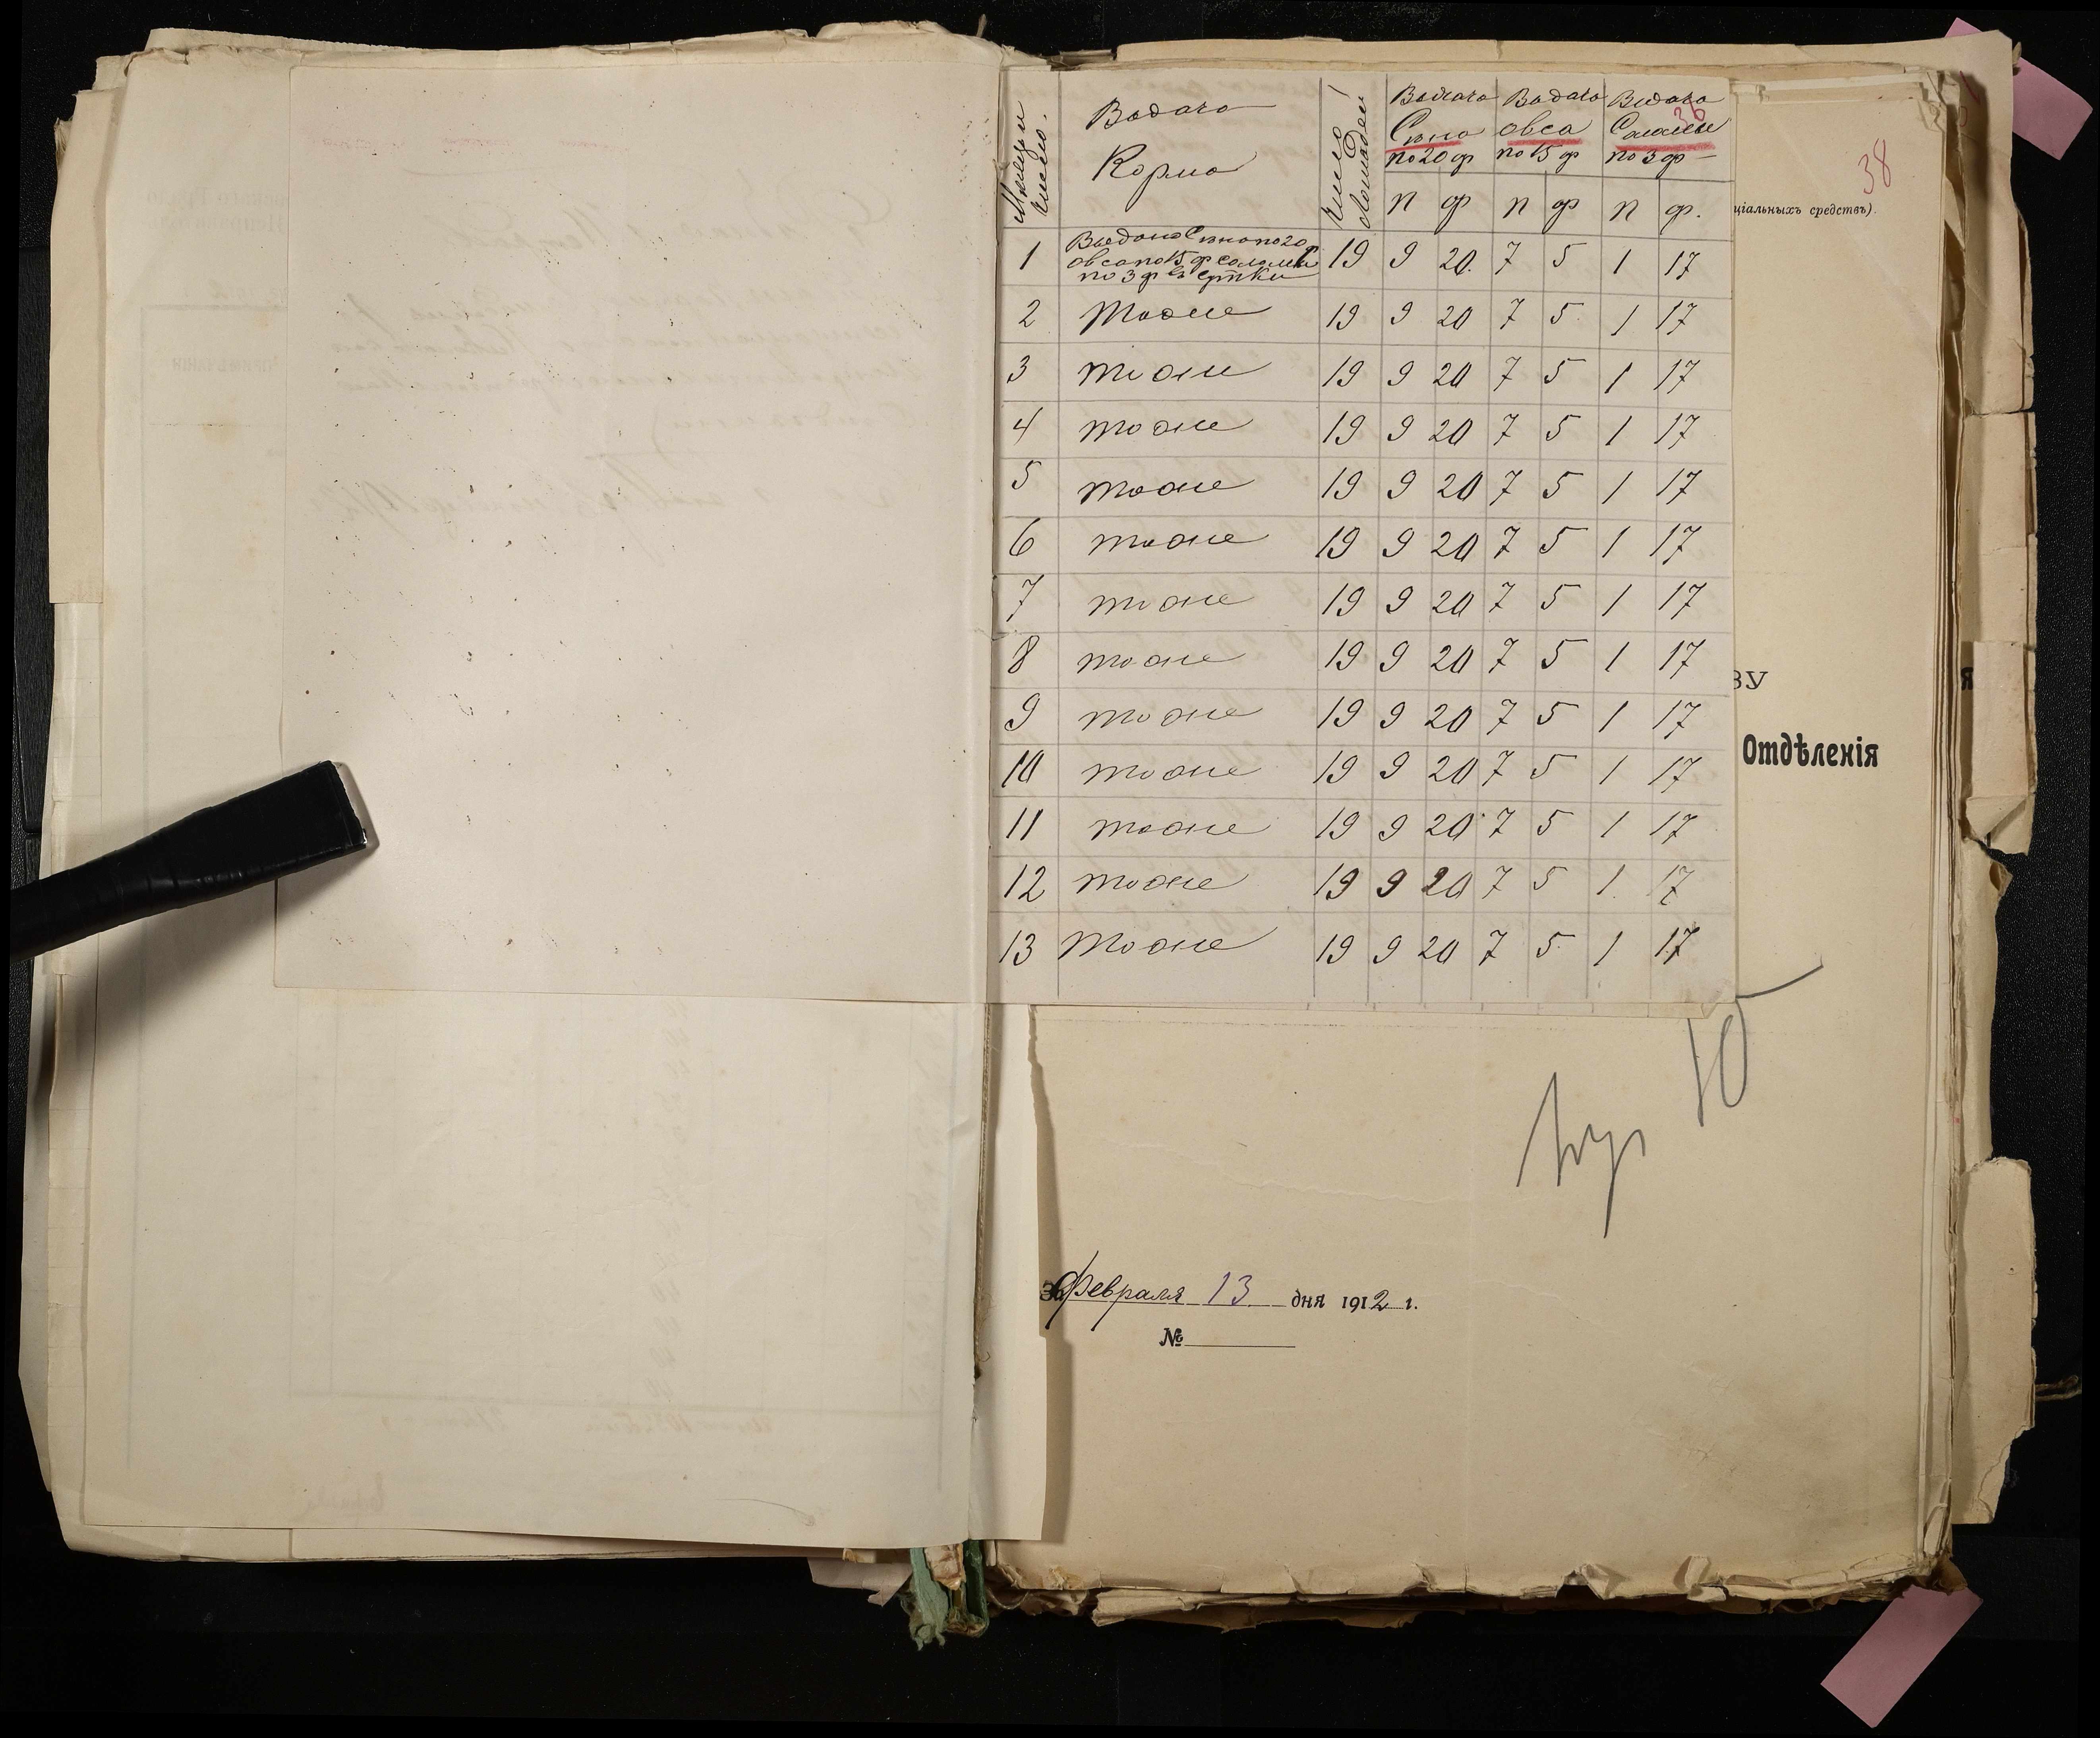 Мѣсяцъ и число.
Выдача Корма
число лошадей
Выдача Сѣна по 20 ф
Выдача овса по 15 ф
Выдача Соломы по 3 ф
36
п ф п ф п ф.
1 Выдано Сѣна по 20 ф 19 9 20. 7 5 1 17
овса по 15 ф соломы
по 3 ф въ сутки
2 Тоже 19 9 20 7 5 1 17
3 тоже 19 9 20 7 5 1 17
4 тоже 19 9 20 7 5 1 17
5 тоже 19 9 20 7 5 1 17
6 тоже 19 9 20 7 5 1 17
7 тоже 19 9 20 7 5 1 17
8 тоже 19 9 20 7 5 1 17
9 тоже 19 9 20 7 5 1 17
10 тоже 19 9 20 7 5 1 17
11 тоже 19 9 20 7 5 1 17
12 тоже 19 9 20 7 5 1 17
13 Тоже 19 9 20 7 5 1 17
38
ціальныхъ средствъ).
ВУ
Отдѣленія
я
Февраля 13 дня 1912 г.
№